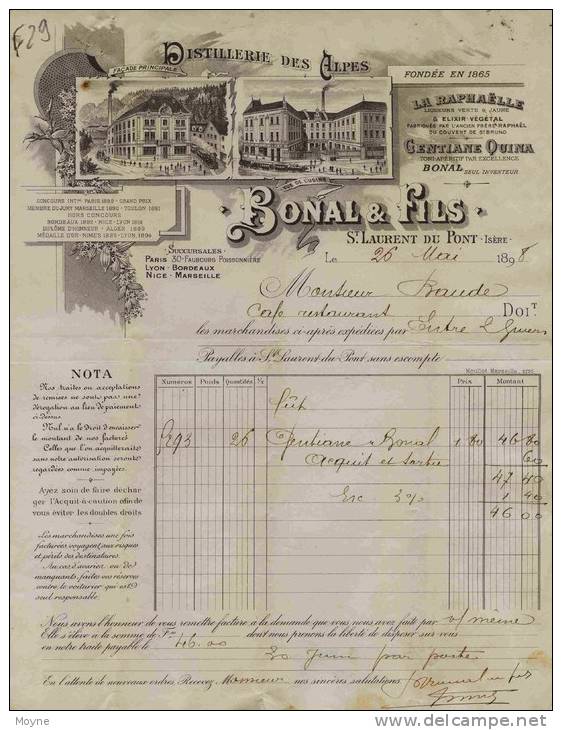 F29
DISTILLERIE DES ALPES
FAÇADE PRINCIPALE
VUE DE L'USINE
FONDÉE EN 1865
LA RAPHAËLLE
LIQUEURS VERTE & JAUNE
& ELIXIR VÉGÉTAL
FABRIQUÉE PAR L'ANCIEN FRÈRE RAPHAËL
DU COUVENT DE ST BRUNO
GENTIANE QUINA
TONI-APÉRITIF PAR EXCELLENCE
BONAL SEUL INVENTEUR
CONCOURS INTNAL PARIS 1889 - GRAND PRIX
MEMBRE DU JURY MARSEILLE 1890 - TOULON 1891
HORS CONCOURS
BORDEAUX 1892 - NICE - LYON 1891
DIPLÔME D'HONNEUR - ALGER 1889
MÉDAILLE D'OR - NIMES 1889 - LYON, 1894
BONAL & FILS
ST LAURENT DU PONT - ISÈRE -
SUCCURSALES
PARIS 30 - FAUBOURG POISSONNIÈRE
LYON - BORDEAUX
NICE - MARSEILLE
Le 26 Mai 1898
Monsieur Baude
Café restaurant DOIT
les marchandises ci-après expédiées par Entre 2 Guiers
Payables à St Laurent-du-Pont sans escompte
Moullot Marseille, grav.
NOTA
Nos traites ou acceptations
de remises ne sont pas une
dérogation au lieu de paiement
ci-dessus.
Nul n'a le Droit d'encaisser
le montant de nos factures
Celles que l'on acquitterait
sans notre autorisation seront
regardées comme impayées.
Ayez soin de faire déchar
ger l'Acquit-à-caution afin de
vous éviter les doubles droits
Les marchandises une fois
facturées voyagent aux risques
et périls des destinataires.
Au cas d'avaries ou de
manquants, faites vos réserves
contre le voiturier qui est
seul responsable.
Numéros Poids Quantités % Prix Montant
fût
893 26 Gentiane Bonal 1.80 46 80
Acquit et 60
47 40
Esc 3% 1 40
46 00
Nous avons l'honneur de vous remettre facture à la demande que vous nous avez faite par v/ même
Elle s'élève à la somme de Fcs 46.00 dont nous prenons la liberté de disposer sur vous
en notre traite payable le 30 Juin par poste
En l'attente de nouveaux ordres, Recevez Monsieur nos sincères salutations
Moyne
www.delcampe.net